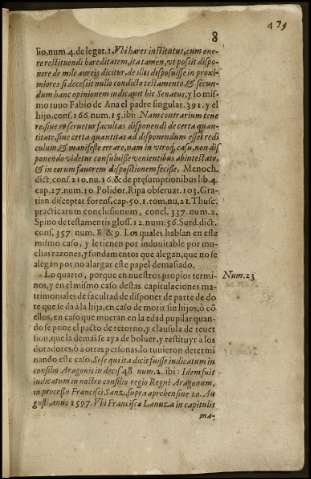 475
8
lio,num.4.de legat.1. Vbi hæres institutus, cum one-
re restituendi hæreditatem, ita tamen, vt possit dispo-
nere de mile aureis dicitur, de illis disposuisse in proxi-
miores si decessit nullo condito testamento, & secun-
dum hanc opinionem iudicauit hic Senatus, y lo mis-
mo tuuo Fabio de Ana el padre singular.391. y el
hijo conf.166 num.15. ibi: Nam contrarium tene-
re, siue reseruetur facultas disponendi de certa quan-
titate, siue certa quantitas ad disponendum esset redi
culum & manifeste errare, nam in vtroq; casu, non dis
ponendo videtur consuluisse venientibus ab intestato,
& in eorum fauorem dispositionem fecisse. Menoch.
dict. conf. 210.nu.16. & de præsumptionibus lib 4.
cap.27.num.10 Polidor. Ripa obseruat. 103. Gra-
tian disceptat. forens. cap.50.1.tom.nu,22. Thusc.
practicarum conclusionum, concl. 337. num.2.
Spino de testamentis glos.12.num.56. Surd. dict.
conf. 357 num.8. & 9. Los quales hablan en este
mismo caso, y le tienen por indubitable por mu-
chas razones, y fundamentos que alegan, que no se
alegan por no alargar este papel demasiado.
Lo quarto, porque en nuestros propios termi-
nos, y en el mismo caso destas capitulaciones ma-
trimoniales de facultad de disponer de parte de do
te que se da a la hija, en caso de morir sin hijos, o cō
ellos, en caso que mueran en la edad pupilar quan-
do se pone el pacto de retorno, y clausula de reuer
tion, que la demas se aya de boluer, y restituyr a los
doradores, ò a otras personas, lo tuuieron determi
nando este caso, Sesse qui ita dicit fuisse iudicatum in
consilio Aragonis in decis 48 num.2. ibi: Idem fuit
iudicatum in nostro consilio regio Regni Aragonum,
in processu Francisci Sanz, supra aprehensiue 20. Au
gusti anno 1597. Vbi Francisca Lanuza in capitulis
ma-
Num.23